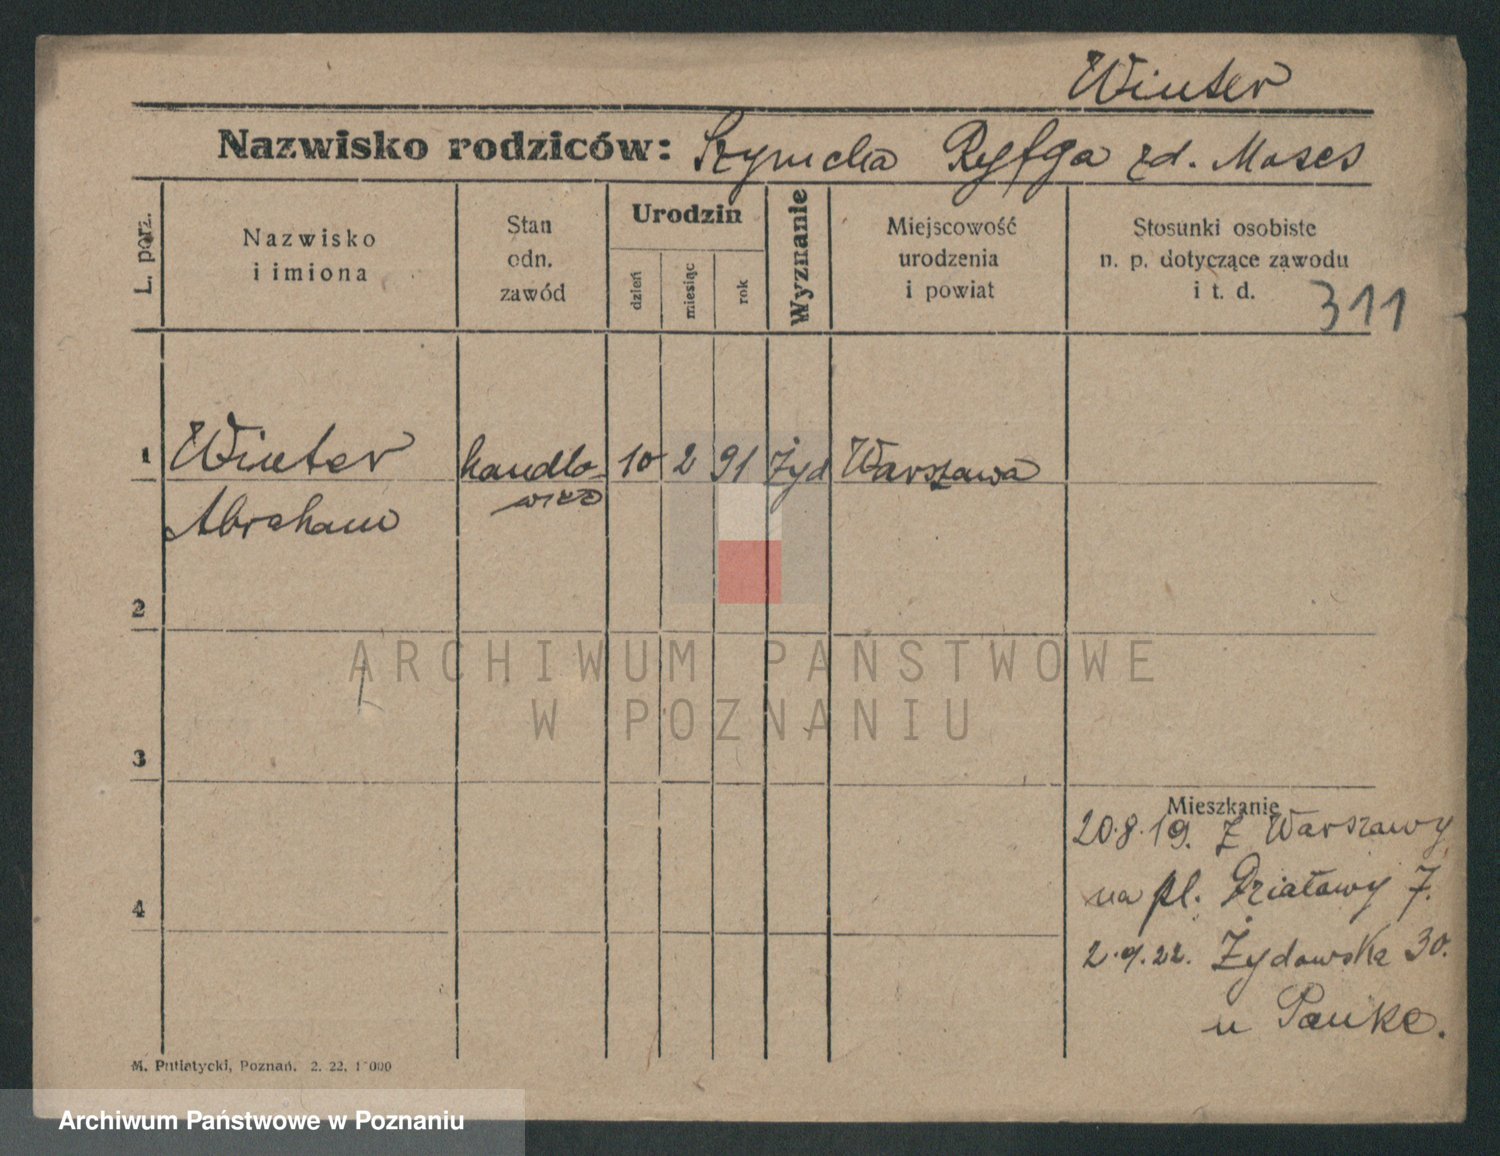 Winter
Nazwisko rodziców: Szymcha Ryfga zd. Moses
L. porz.
Nazwisko
i imiona
Stan
odn.
zawód
Urodzin
dzień
miesiąc
rok
Wyznanie
Miejscowość
urodzenia
i powiat
Stosunki osobiste
n. p. dotyczące zawodu
i t. d.
311
1 Winter handlo- 10 2 91 Żyd Warszawa
wiec
Abraham
2
ARCHIWUM PAŃSTWOWE
W POZNANIU
3
Mieszkanie
20.8.19. Z Warszawy
na pl. Działowy 7.
4
2.9.22. Żydowska 30.
u Panke.
M. Putiatycki, Poznań. 2. 22. 1 000
Archiwum Państwowe w Poznaniu